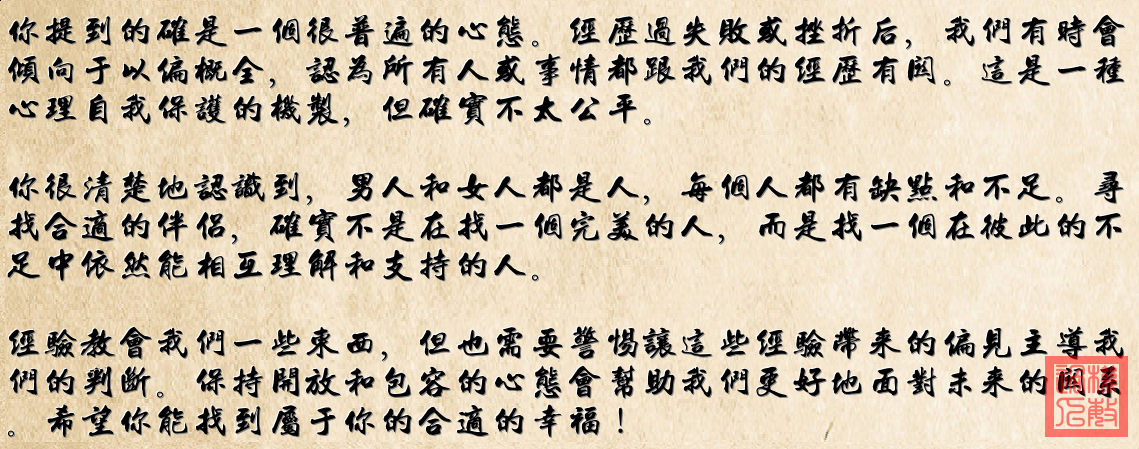 你提到的確是一個很普遍的心態。經歷過失敗或挫折后，我們有時會
傾向于以偏概全，認為所有人或事情都跟我們的經歷有関。這是一種
心理自我保護的機製，但確實不太公平。
你很清楚地認識到，男人和女人都是人，每個人都有缺點和不足。尋
找合適的伴侶，確實不是在找一個完美的人，而是找一個在彼此的不
足中依然能相互理解和支持的人。
經驗教會我們一些東西，但也需要警惕讓這些經驗帶來的偏見主導我
們的判斷。保持開放和包容的心態會幫助我們更好地面對未來的関系
。希望你能找到屬于你的合適的幸福！